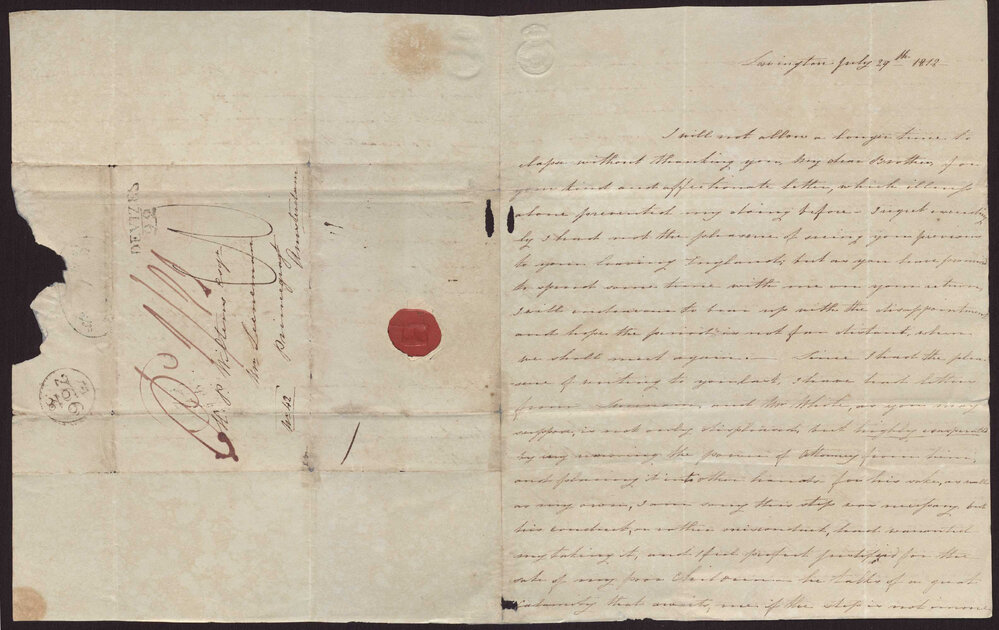 DEVIZES
W. P. Williams Esqr
Mr Lunemann
Prinsegragt
Amsterdam
No 42
Lavington July 29th 1812
I will not allow a longer time to
elapse without thanking you, My dear Brother, for
your kind and affectionate letter, which illness
alone prevented my doing before. I regret exceeding
ly I had not the pleasure of seeing you previous
to your leaving England, but as you have promised
to spend some time with me on your return,
I will endeavour to bear up with the disappointment
and hope the period is not far distant, when
we shall meet again. Since I had the plea
sure of writing to you last, I have had letters
from and Mr White, as you may
suppose, is not only displeased, but highly exasperated
by my removing the power of Attorney from him,
and placing it into other hands. for his sake, as well
as my own, I am sorry this step was necessary but
his conduct, or rather misconduct, had warranted
my taking it, and I feel perfect justified for the
sake of my poor Children. he talks of a great
calamity that awaits me if the step is not